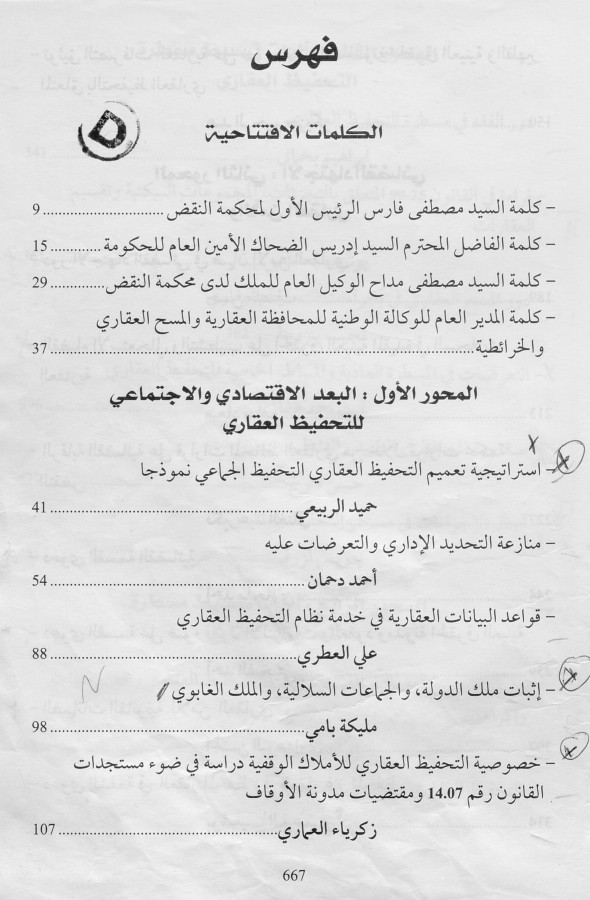 فهرس
الكلمات الافتتاحية
D
- كلمة السيد مصطفى فارس الرئيس الأول لمحكمة النقض ............................ 9
- كلمة الفاضل المحترم السيد إدريس الضحاك الأمين العام للحكومة ............ 15
- كلمة السيد مصطفى مداح الوكيل العام للملك لدى محكمة النقض ............. 29
- كلمة المدير العام للوكالة الوطنية للمحافظة العقارية والمسح العقاري
والخرائطية .................................................................................... 37
المحور الأول : البعد الاقتصادي والاجتماعي
للتحفيظ العقاري
- استراتيجية تعميم التحفيظ العقاري التحفيظ الجماعي نموذجا
حميد الربيعي ......................................................... 41
- منازعة التحديد الإداري والتعرضات عليه
أحمد دحمان ........................................................... 54
- قواعد البيانات العقارية في خدمة نظام التحفيظ العقاري
علي العطري ........................................................... 88
- إثبات ملك الدولة، والجماعات السلالية، والملك الغابوي
مليكة بامي ............................................................. 98
- خصوصية التحفيظ العقاري للأملاك الوقفية دراسة في ضوء مستجدات
القانون رقم 14.07 ومقتضيات مدونة الأوقاف
زكرياء العماري ....................................................... 107
667